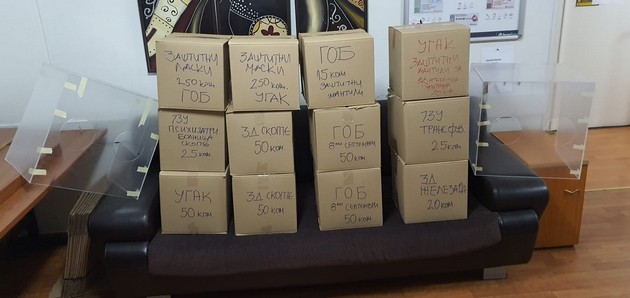 ЗАШТИТНИ
МАСКИ
250 ком.
ГОБ
ЗАШТИТНИ
МАСКИ
250 ком.
УГАК
ГОБ
15 ком
ЗАШТИТНИ
МАНТИЛИ
УГАК
ЗАШТИТНИ
МАНТИЛИ ЗА
ЈЗУ
ПСИХИЈАТРИ
БОЛНИЦА
СКОПЈЕ
25 ком
ЗД СКОПЈЕ
50 ком
ГОБ
8ми СЕПТЕМВРИ
50 ком
ЈЗУ
ТРАНСФУЗ.
25 ком
УГАК
50 ком
ЗД СКОПЈЕ
50 ком
ГОБ
8ми СЕПТЕМВРИ
50 ком
ЗД
20 ком